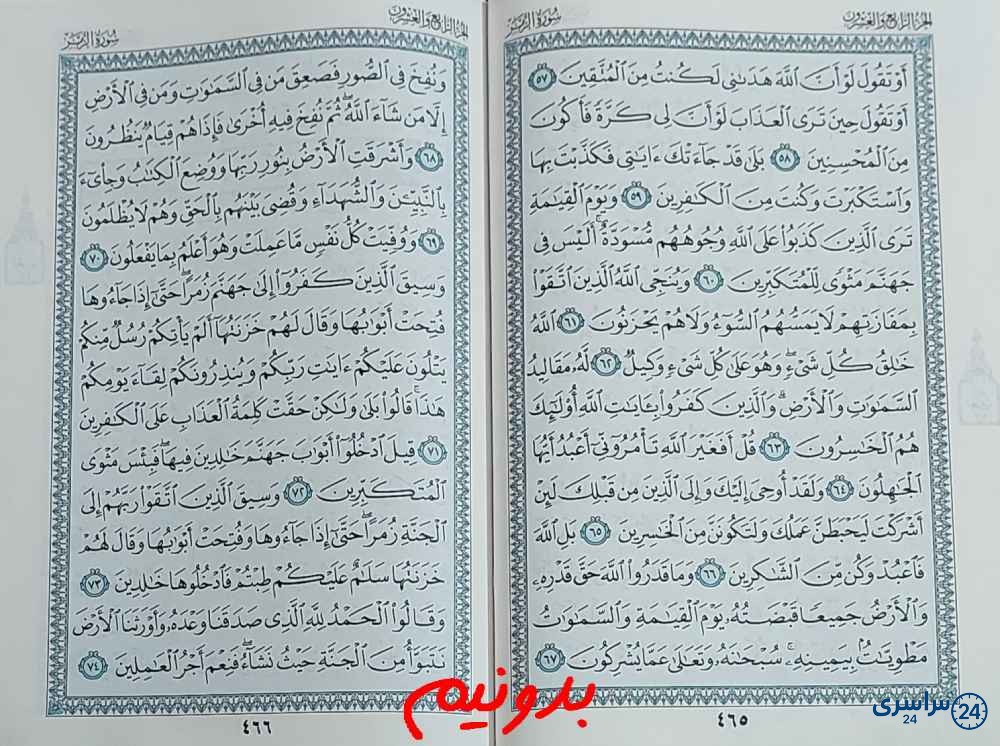 الجزء الرابع والعشرون
سورة الزمر
أَوْ تَقُولَ لَوْ أَنَّ ٱللَّهَ هَدَىٰنِى لَكُنتُ مِنَ ٱلْمُتَّقِينَ ٥٧
أَوْ تَقُولَ حِينَ تَرَى ٱلْعَذَابَ لَوْ أَنَّ لِى كَرَّةً فَأَكُونَ
مِنَ ٱلْمُحْسِنِينَ ٥٨ بَلَىٰ قَدْ جَآءَتْكَ ءَايَٰتِى فَكَذَّبْتَ بِهَا
وَٱسْتَكْبَرْتَ وَكُنتَ مِنَ ٱلْكَٰفِرِينَ ٥٩ وَيَوْمَ ٱلْقِيَٰمَةِ
تَرَى ٱلَّذِينَ كَذَبُوا۟ عَلَى ٱللَّهِ وُجُوهُهُم مُّسْوَدَّةٌ ۚ أَلَيْسَ فِى
جَهَنَّمَ مَثْوًى لِّلْمُتَكَبِّرِينَ ٦٠ وَيُنَجِّى ٱللَّهُ ٱلَّذِينَ ٱتَّقَوْا۟
بِمَفَازَتِهِمْ لَا يَمَسُّهُمُ ٱلسُّوٓءُ وَلَا هُمْ يَحْزَنُونَ ٦١ ٱللَّهُ
خَٰلِقُ كُلِّ شَىْءٍ ۖ وَهُوَ عَلَىٰ كُلِّ شَىْءٍ وَكِيلٌ ٦٢ لَّهُۥ مَقَالِيدُ
ٱلسَّمَٰوَٰتِ وَٱلْأَرْضِ ۗ وَٱلَّذِينَ كَفَرُوا۟ بِـَٔايَٰتِ ٱللَّهِ أُو۟لَٰٓئِكَ
هُمُ ٱلْخَٰسِرُونَ ٦٣ قُلْ أَفَغَيْرَ ٱللَّهِ تَأْمُرُوٓنِّىٓ أَعْبُدُ أَيُّهَا
ٱلْجَٰهِلُونَ ٦٤ وَلَقَدْ أُوحِىَ إِلَيْكَ وَإِلَى ٱلَّذِينَ مِن قَبْلِكَ لَئِنْ
أَشْرَكْتَ لَيَحْبَطَنَّ عَمَلُكَ وَلَتَكُونَنَّ مِنَ ٱلْخَٰسِرِينَ ٦٥ بَلِ ٱللَّهَ
فَٱعْبُدْ وَكُن مِّنَ ٱلشَّٰكِرِينَ ٦٦ وَمَا قَدَرُوا۟ ٱللَّهَ حَقَّ قَدْرِهِۦ
وَٱلْأَرْضُ جَمِيعًا قَبْضَتُهُۥ يَوْمَ ٱلْقِيَٰمَةِ وَٱلسَّمَٰوَٰتُ
مَطْوِيَّٰتٌۢ بِيَمِينِهِۦ ۚ سُبْحَٰنَهُۥ وَتَعَٰلَىٰ عَمَّا يُشْرِكُونَ ٦٧
٤٦٥
الجزء الرابع والعشرون
سورة الزمر
وَنُفِخَ فِى ٱلصُّورِ فَصَعِقَ مَن فِى ٱلسَّمَٰوَٰتِ وَمَن فِى ٱلْأَرْضِ
إِلَّا مَن شَآءَ ٱللَّهُ ۖ ثُمَّ نُفِخَ فِيهِ أُخْرَىٰ فَإِذَا هُمْ قِيَامٌ يَنظُرُونَ
٦٨ وَأَشْرَقَتِ ٱلْأَرْضُ بِنُورِ رَبِّهَا وَوُضِعَ ٱلْكِتَٰبُ وَجِا۟ىٓءَ
بِٱلنَّبِيِّـۧنَ وَٱلشُّهَدَآءِ وَقُضِىَ بَيْنَهُم بِٱلْحَقِّ وَهُمْ لَا يُظْلَمُونَ
٦٩ وَوُفِّيَتْ كُلُّ نَفْسٍ مَّا عَمِلَتْ وَهُوَ أَعْلَمُ بِمَا يَفْعَلُونَ ٧٠
وَسِيقَ ٱلَّذِينَ كَفَرُوٓا۟ إِلَىٰ جَهَنَّمَ زُمَرًا ۖ حَتَّىٰٓ إِذَا جَآءُوهَا
فُتِحَتْ أَبْوَٰبُهَا وَقَالَ لَهُمْ خَزَنَتُهَآ أَلَمْ يَأْتِكُمْ رُسُلٌ مِّنكُمْ
يَتْلُونَ عَلَيْكُمْ ءَايَٰتِ رَبِّكُمْ وَيُنذِرُونَكُمْ لِقَآءَ يَوْمِكُمْ
هَٰذَا ۚ قَالُوا۟ بَلَىٰ وَلَٰكِنْ حَقَّتْ كَلِمَةُ ٱلْعَذَابِ عَلَى ٱلْكَٰفِرِينَ
٧١ قِيلَ ٱدْخُلُوٓا۟ أَبْوَٰبَ جَهَنَّمَ خَٰلِدِينَ فِيهَا ۖ فَبِئْسَ مَثْوَى
ٱلْمُتَكَبِّرِينَ ٧٢ وَسِيقَ ٱلَّذِينَ ٱتَّقَوْا۟ رَبَّهُمْ إِلَى
ٱلْجَنَّةِ زُمَرًا ۖ حَتَّىٰٓ إِذَا جَآءُوهَا وَفُتِحَتْ أَبْوَٰبُهَا وَقَالَ لَهُمْ
خَزَنَتُهَا سَلَٰمٌ عَلَيْكُمْ طِبْتُمْ فَٱدْخُلُوهَا خَٰلِدِينَ ٧٣
وَقَالُوا۟ ٱلْحَمْدُ لِلَّهِ ٱلَّذِى صَدَقَنَا وَعْدَهُۥ وَأَوْرَثَنَا ٱلْأَرْضَ
نَتَبَوَّأُ مِنَ ٱلْجَنَّةِ حَيْثُ نَشَآءُ ۖ فَنِعْمَ أَجْرُ ٱلْعَٰمِلِينَ ٧٤
٤٦٦
بدونیم
سراسری
24
24